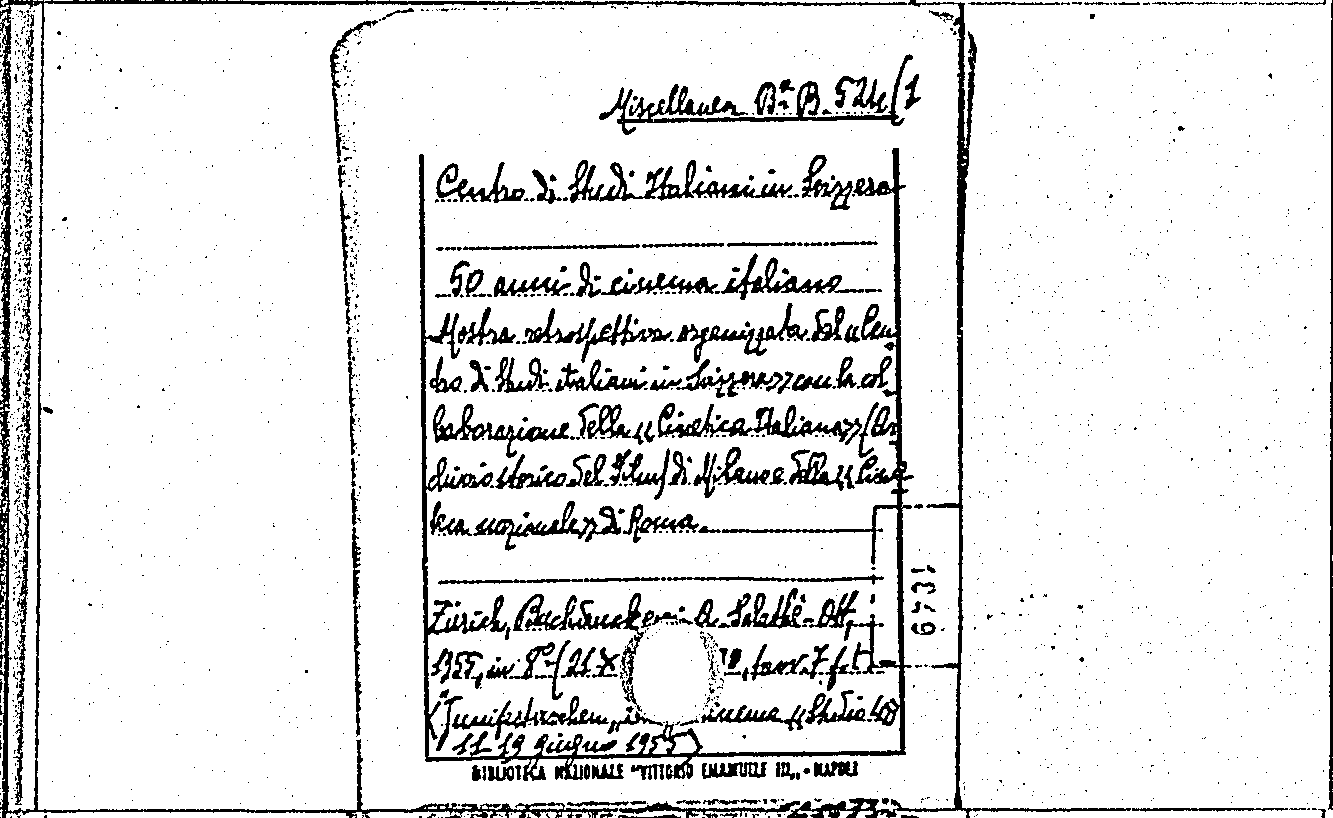 Miscellanea Bª B. 524/1
Centro di Studi Italiani in Svizzera
50 anni di cinema italiano
Mostra retrospettiva organizzata dal «Cen
tro di Studi italiani in Svizzera» con la col_
laborazione della «Cinetica Italiana» (Ar
chivio storico del Film) di Milano e della «Cine
teca nazionale» di Roma.
Zürich, Buchdruckerei A. Salathé-Ott,
1955, in 8° (21 x tav. 7 f.t
cinema «Studio 4»
11-19 giugno 1955)
6731
BIBLIOTECA NAZIONALE "VITTORIO EMANUELE III„ - NAPOLI